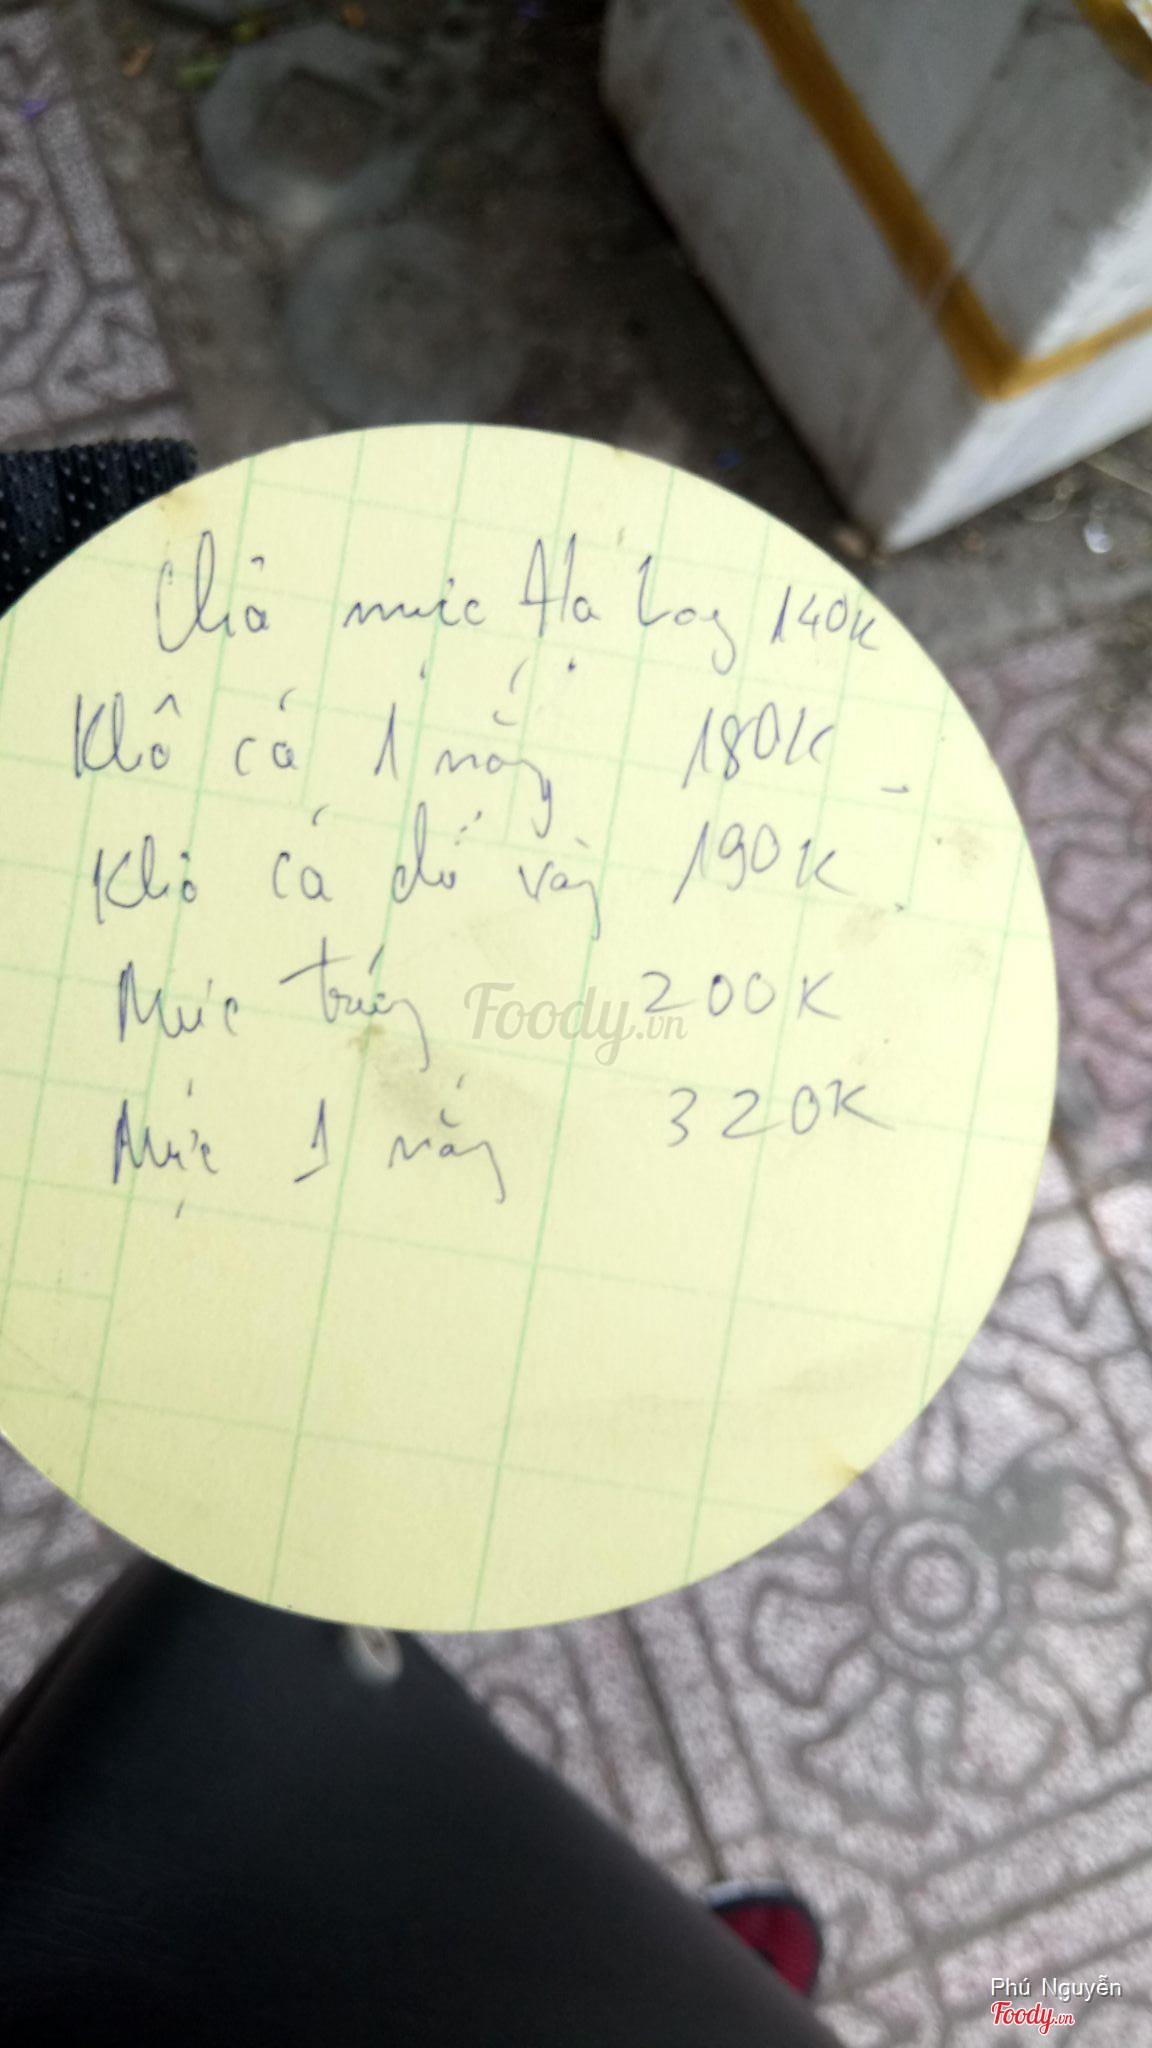 Chả mực Hạ Long 140K
Khô cá 1 nắng 180K
Khô cá đù vàng 190K
Mực trứng 200K
Mực 1 nắng 320K
Foody.vn
Phú Nguyễn
Foody.vn